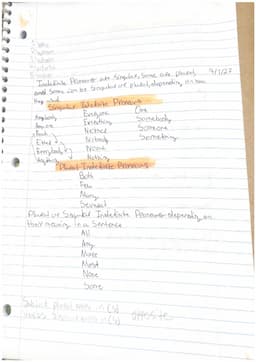 Indefinite Pronouns are singular, some are plural, 9/1/27
and some can be singular or plural, depending on how
they used
Singular Indefinite Pronouns
Anybody Everyone One
Anyone Everything Somebody
Each Neither Someone
Either Nobody Something
Everybody No one
Anything Nothing
Plural Indefinite Pronouns
Both
Few
Many
Several
Plural or Singular Indefinite Pronouns depending on
their meaning in a Sentence
All
Any
More
Most
None
Some
Subject plural ends in (s)
verbs singular ends in (s) opposite